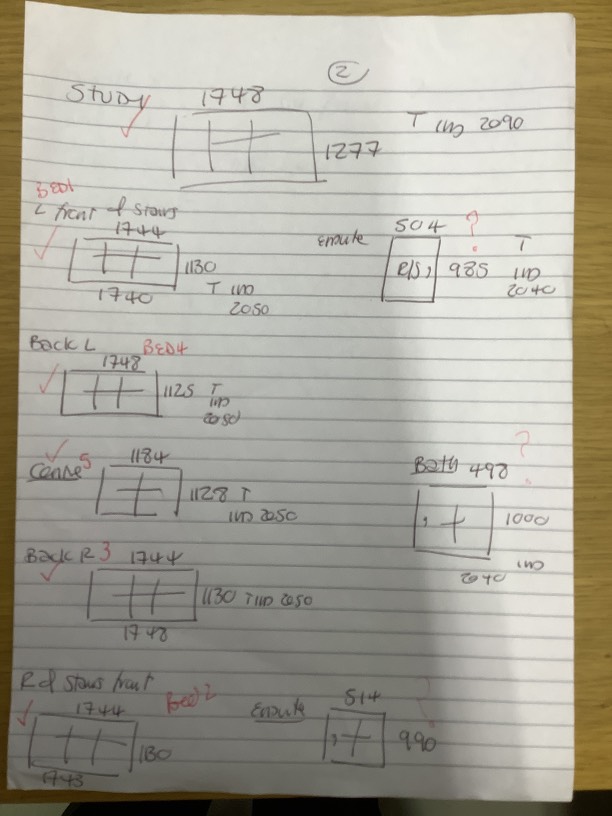 2
Study 1748
1277 T IND 2090
BED1
L front of stairs
1744
1130
1740 T IND
2050
Ensuite 504 ?
985 T
IND
2040
Back L BED4
1748
1125 T
IND
2050
Centre 5 1184
1128 T
IND 2050
Bath 498 ?
1000
2040 IND
Back R 3 1744
1130 T IND 2050
1748
R of stairs front
1744 Bed 2
1130
1743
Ensuite 514 ?
990